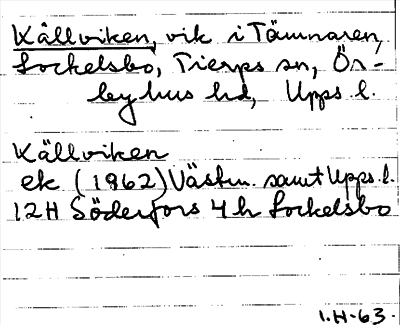 Källviken, vik i Tämnaren,
Sockelsbo, Tierps sn, Ör-
byhus hd, Upps. l.
Källviken
ek (1962) Västm. samt Upps. l.
12H Söderfors 4h Sockelsbo
I.H-63.